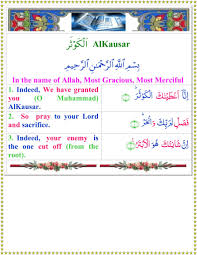 اَلْكَوْثَر AlKausar
بِسْمِ اللّٰهِ الرَّحْمٰنِ الرَّحِيْمِ
In the name of Allah, Most Gracious, Most Merciful
1. Indeed, We have granted
you (O Muhammad)
AlKausar.
إِنَّآ أَعْطَيْنٰكَ الْكَوْثَرَ
2. So pray to your Lord
and sacrifice.
فَصَلِّ لِرَبِّكَ وَانْحَرْ
3. Indeed, your enemy is
the one cut off (from the
root).
إِنَّ شَانِئَكَ هُوَ الْأَبْتَرُ